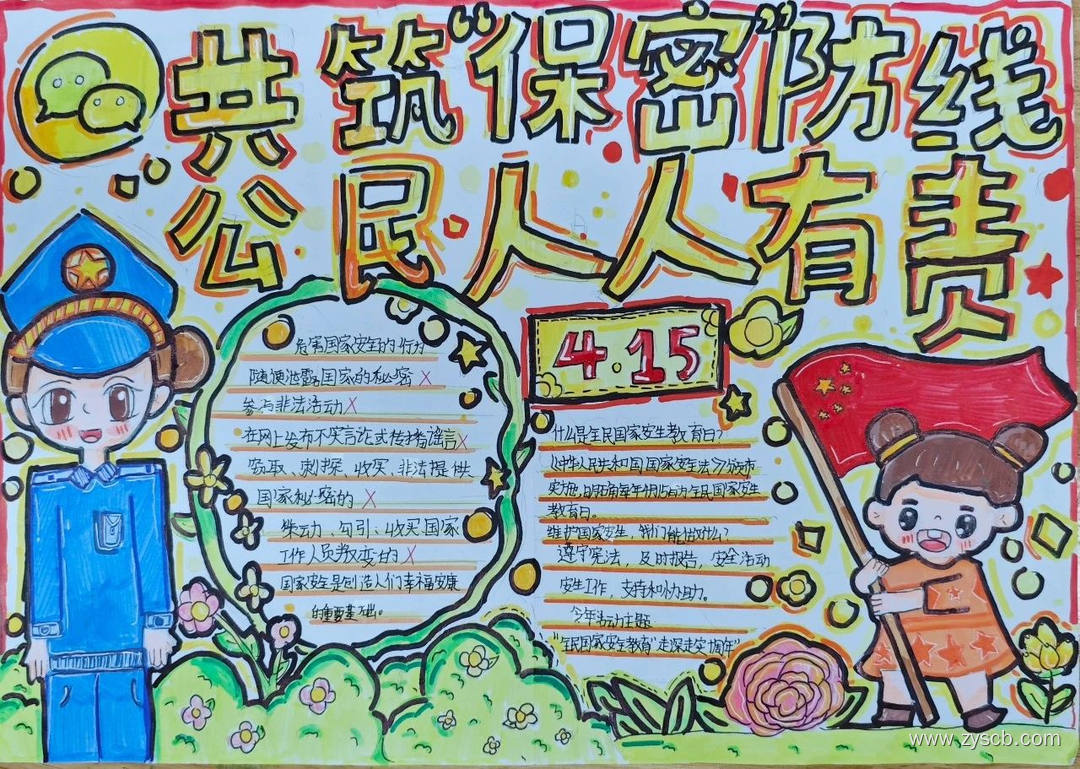 共筑“保密”防线
公民人人有责
危害国家安全的行为
随便泄露国家的秘密 X
参与非法活动 X
在网上发布不实言论或传播谣言 X
窃取、刺探、收买、非法提供
国家秘密的 X
策动、勾引、收买国家
工作人员叛变的 X
国家安全是创造人们幸福安康
的重要基础。
4.15
什么是全民国家安全教育日?
《中华人民共和国国家安全法》颁布
实施,明确每年4月15日为全民国家安全
教育日。
维护国家安全,我们能做什么?
遵守宪法,及时报告,安全活动
安全工作,支持和协助。
今年活动主题
“全民国家安全教育 走深走实十周年”
www.zyscb.com